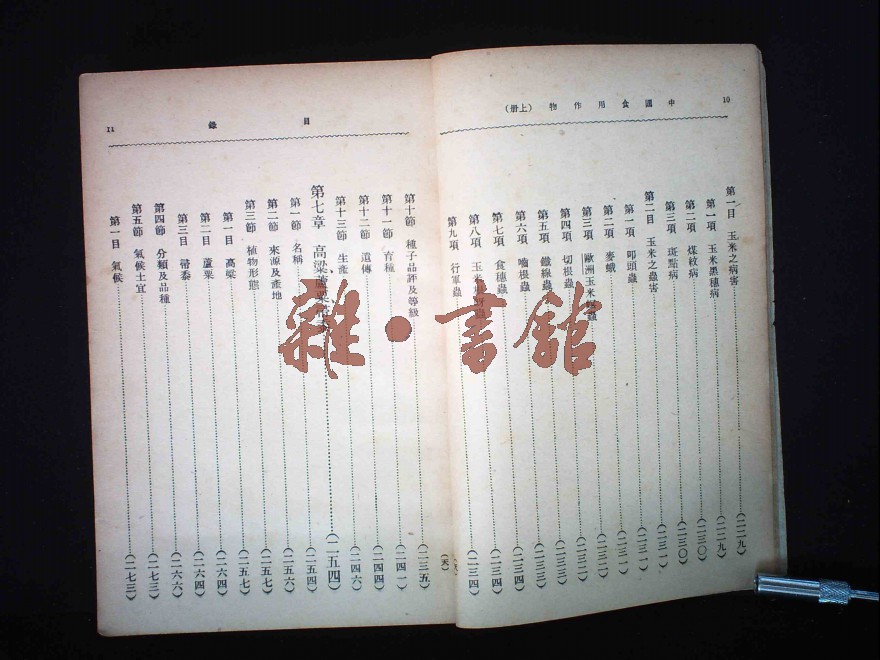 10
中國食用作物 (上册)
第一目 玉米之病害 (二二九)
第一項 玉米黑穗病 (二二九)
第二項 煤紋病 (二三〇)
第三項 斑點病 (二三〇)
第二目 玉米之蟲害 (二三一)
第一項 叩頭蟲 (二三一)
第二項 麥蛾 (二三二)
第三項 歐洲玉米螟蟲
第四項 切根蟲
第五項 鐵線蟲 (二三三)
第六項 嚙根蟲 (二三四)
第七項 食穗蟲 (二三四)
第八項 玉米
第九項 行軍蟲 (二三四)
目錄
11
第十節 種子品評及等級 (二三五)
第十一節 育種 (二四一)
第十二節 遺傳 (二四四)
第十三節 生產 (二四六)
第七章 高粱蘆粟 (二五四)
第一節 名稱 (二五四)
第二節 來源及產地 (二五六)
第三節 植物形態 (二五七)
第一目 高粱 (二五七)
第二目 蘆粟 (二六四)
第三目 帚黍 (二六六)
第四節 分類及品種 (二七三)
第五節 氣候土宜 (二七三)
第一目 氣候
(天)
雜·書館